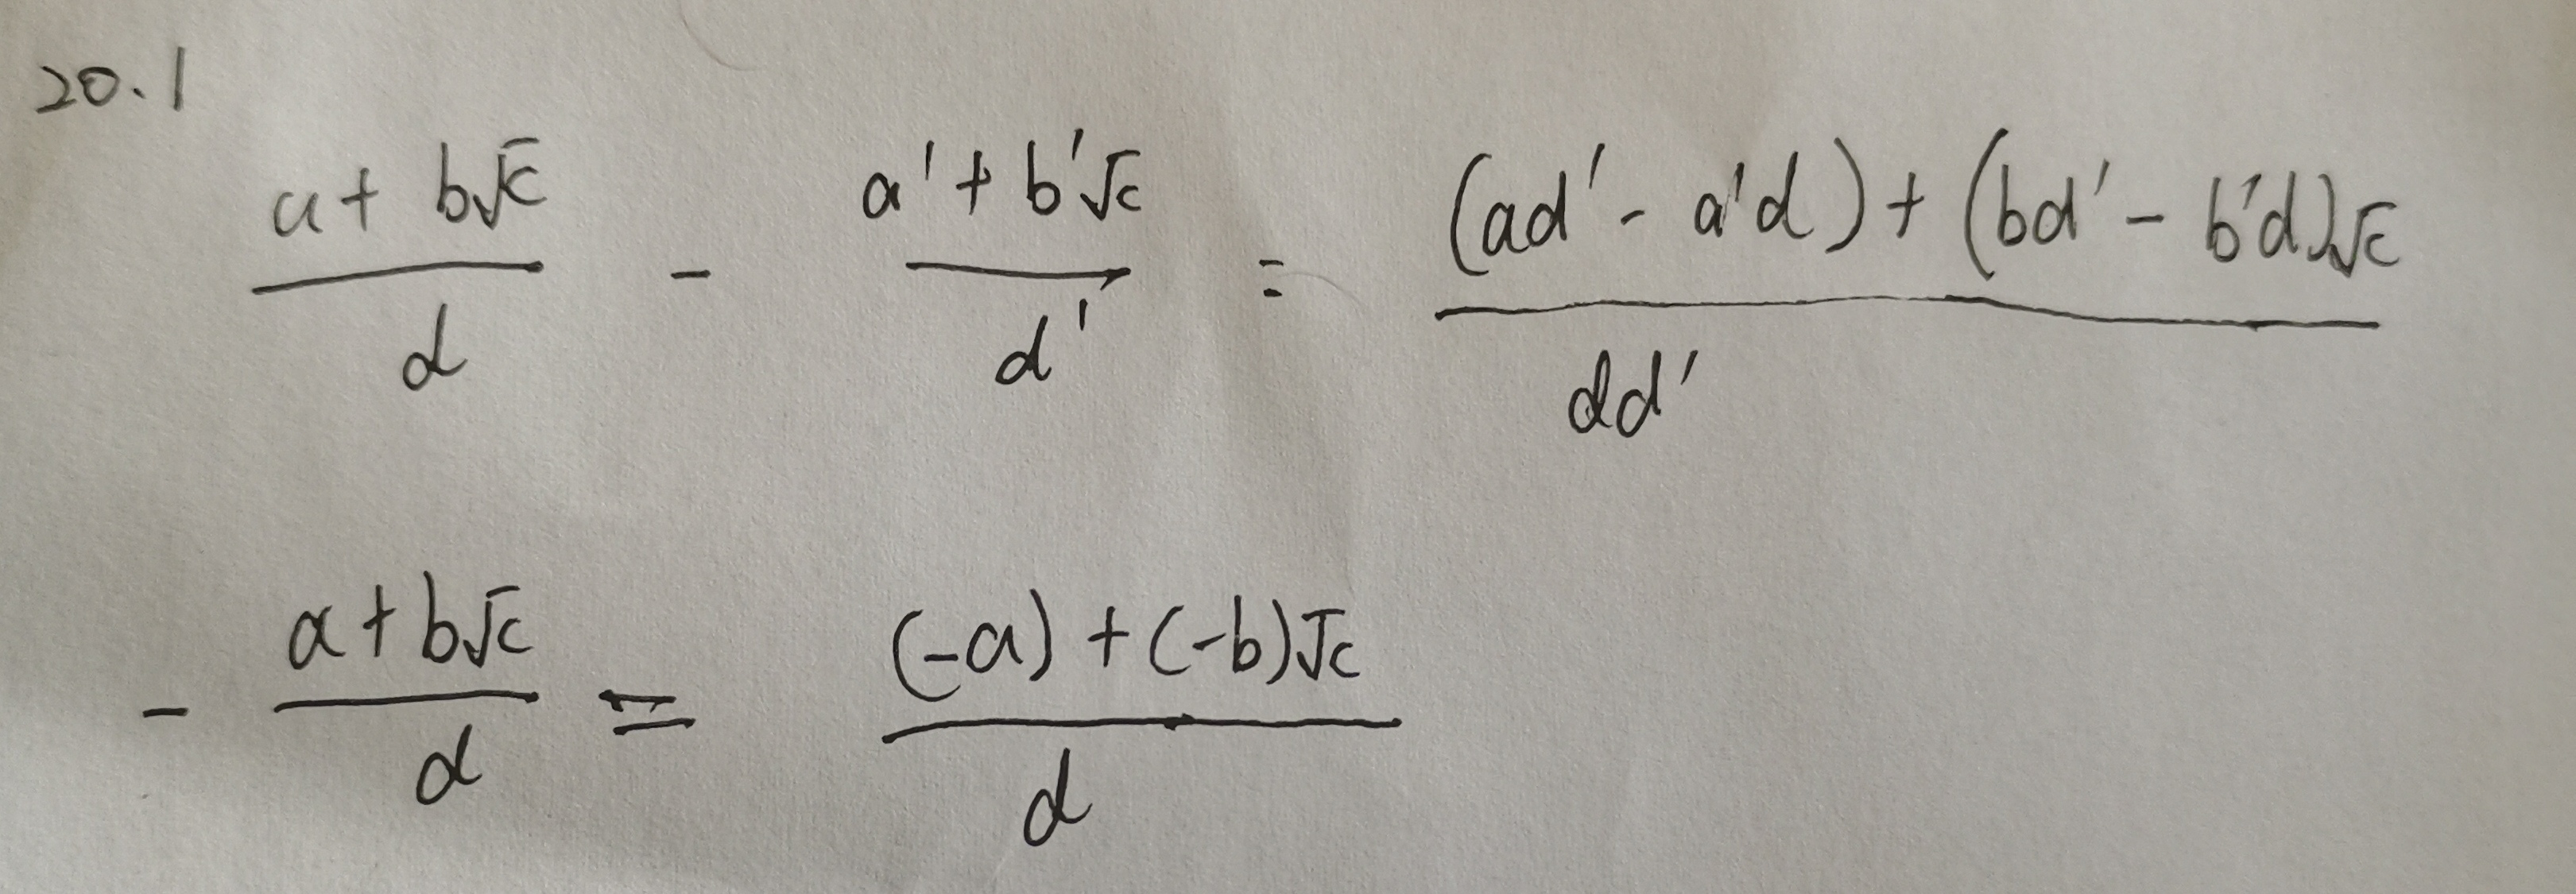 20.1
\frac{a + b\sqrt{c}}{d} - \frac{a' + b'\sqrt{c}}{d'} = \frac{(ad' - a'd) + (bd' - b'd)\sqrt{c}}{dd'}
- \frac{a + b\sqrt{c}}{d} = \frac{(-a) + (-b)\sqrt{c}}{d}